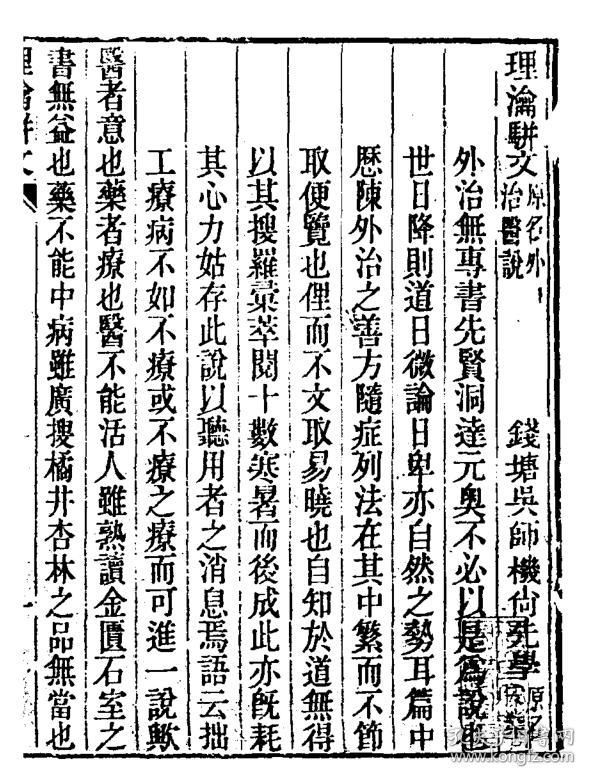 理瀹駢文 原名外治醫說
錢塘吳師機尚先學 原名
外治無專書先賢洞達元奧不必以是為說也
世日降則道日微論日卑亦自然之勢耳篇中
歷陳外治之善方隨症列法在其中繁而不節
取便覽也俚而不文取易曉也自知於道無得
以其搜羅彙萃閱十數寒暑而後成此亦旣耗
其心力姑存此說以聽用者之消息焉語云拙
工療病不如不療或不療之療而可進一說歟
醫者意也藥者療也醫不能活人雖熟讀金匱石室之
書無益也藥不能中病雖廣搜橘井杏林之品無當也
理瀹駢文
www.kongfz.com